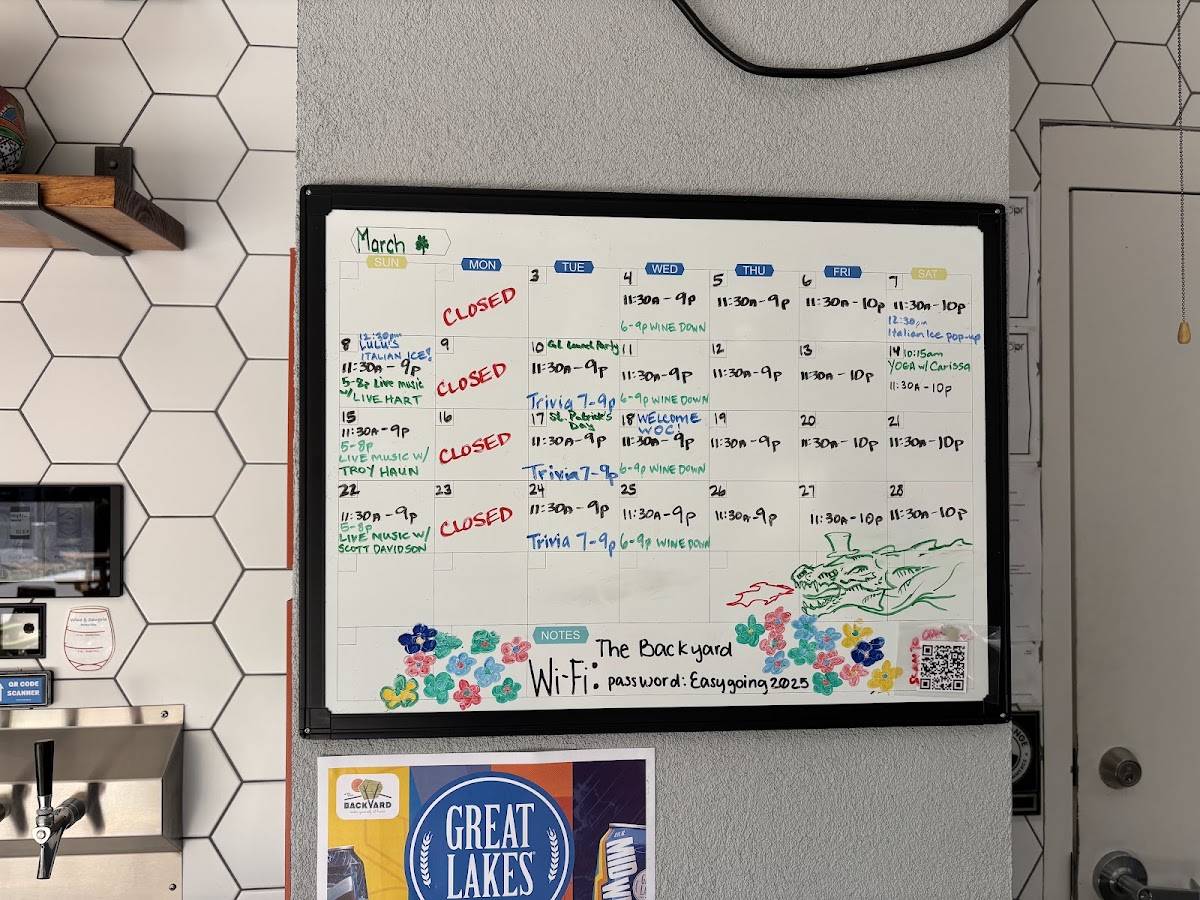 March
SUN MON TUE WED THU FRI SAT
CLOSED
3
4
11:30A-9p
6-9p WINE DOWN
5
11:30A-9p
6
11:30A-10p
7
11:30A-10p
12:30pm
Italian Ice pop-up
8 12:30pm
LULU'S
ITALIAN ICE!
11:30A-9p
5-8p Live music
w/ LIVE HART
9
CLOSED
10 GL Launch Party
11:30A-9p
Trivia 7-9p
11
11:30A-9p
6-9p WINE DOWN
12
11:30A-9p
13
11:30A-10p
14 10:15am
YOGA w/ Carissa
11:30A-10p
15
11:30A-9p
5-8p
LIVE MUSIC w/
TROY HAUN
16
CLOSED
17 St. Patrick's
Day
11:30A-9p
Trivia 7-9p
18 WELCOME
WOC!
11:30A-9p
6-9p WINE DOWN
19
11:30A-9p
20
11:30A-10p
21
11:30A-10p
22
11:30A-9p
5-8p
LIVE MUSIC w/
SCOTT DAVIDSON
23
CLOSED
24
11:30A-9p
Trivia 7-9p
25
11:30A-9p
6-9p WINE DOWN
26
11:30A-9p
27
11:30A-10p
28
11:30A-10p
NOTES
The Backyard
Wi-Fi: password: Easygoing2025
QR CODE
SCANNER
BACKYARD
GREAT
LAKES